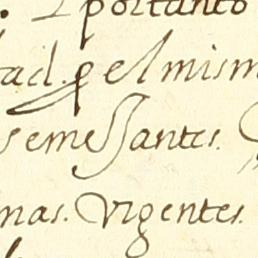 . portanto
ad. por el mism
semejantes.
nas. Vigentes.